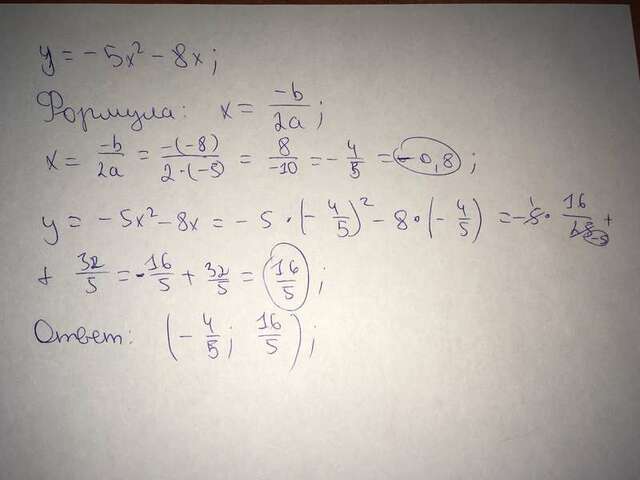 y = -5x² - 8x;
Формула: x = -b/2a;
x = -b/2a = -(-8)/2·(-5) = 8/-10 = -4/5 = -0,8;
y = -5x² - 8x = -5·(-4/5)² - 8·(-4/5) = -5· 16/25 +
+ 32/5 = -16/5 + 32/5 = 16/5;
Ответ: (-4/5; 16/5);